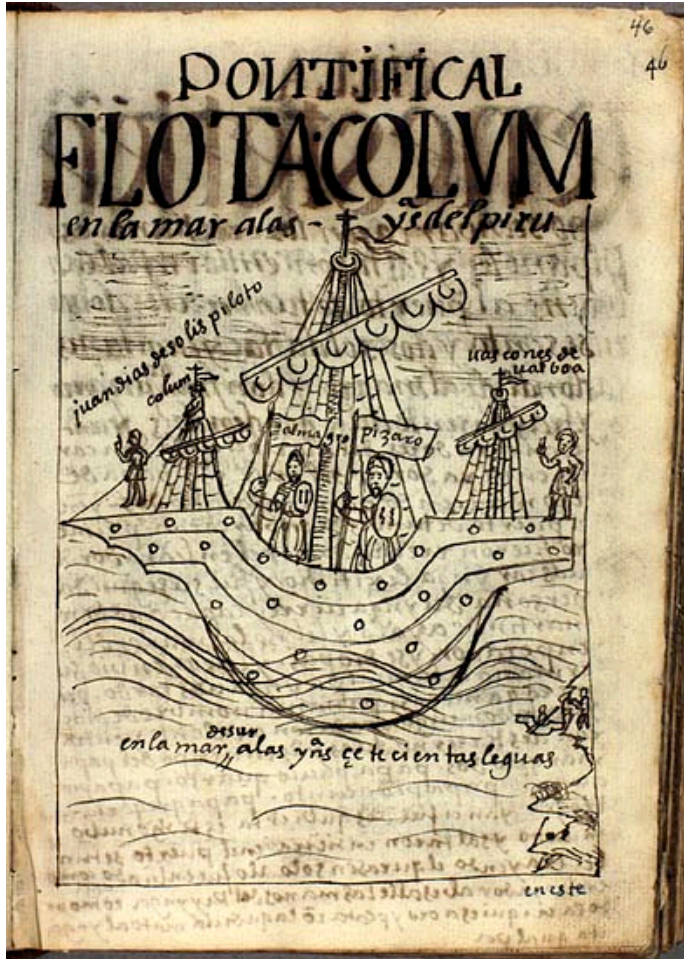 46
46
PONTIFICAL
FLOTACOLVM
en la mar a las - yªs del piru
juan dias de solis piloto
colum
uascones de
ualboa
almagro
pizaro
de sur
en la mar a las ynªs çetecientas leguas
en este